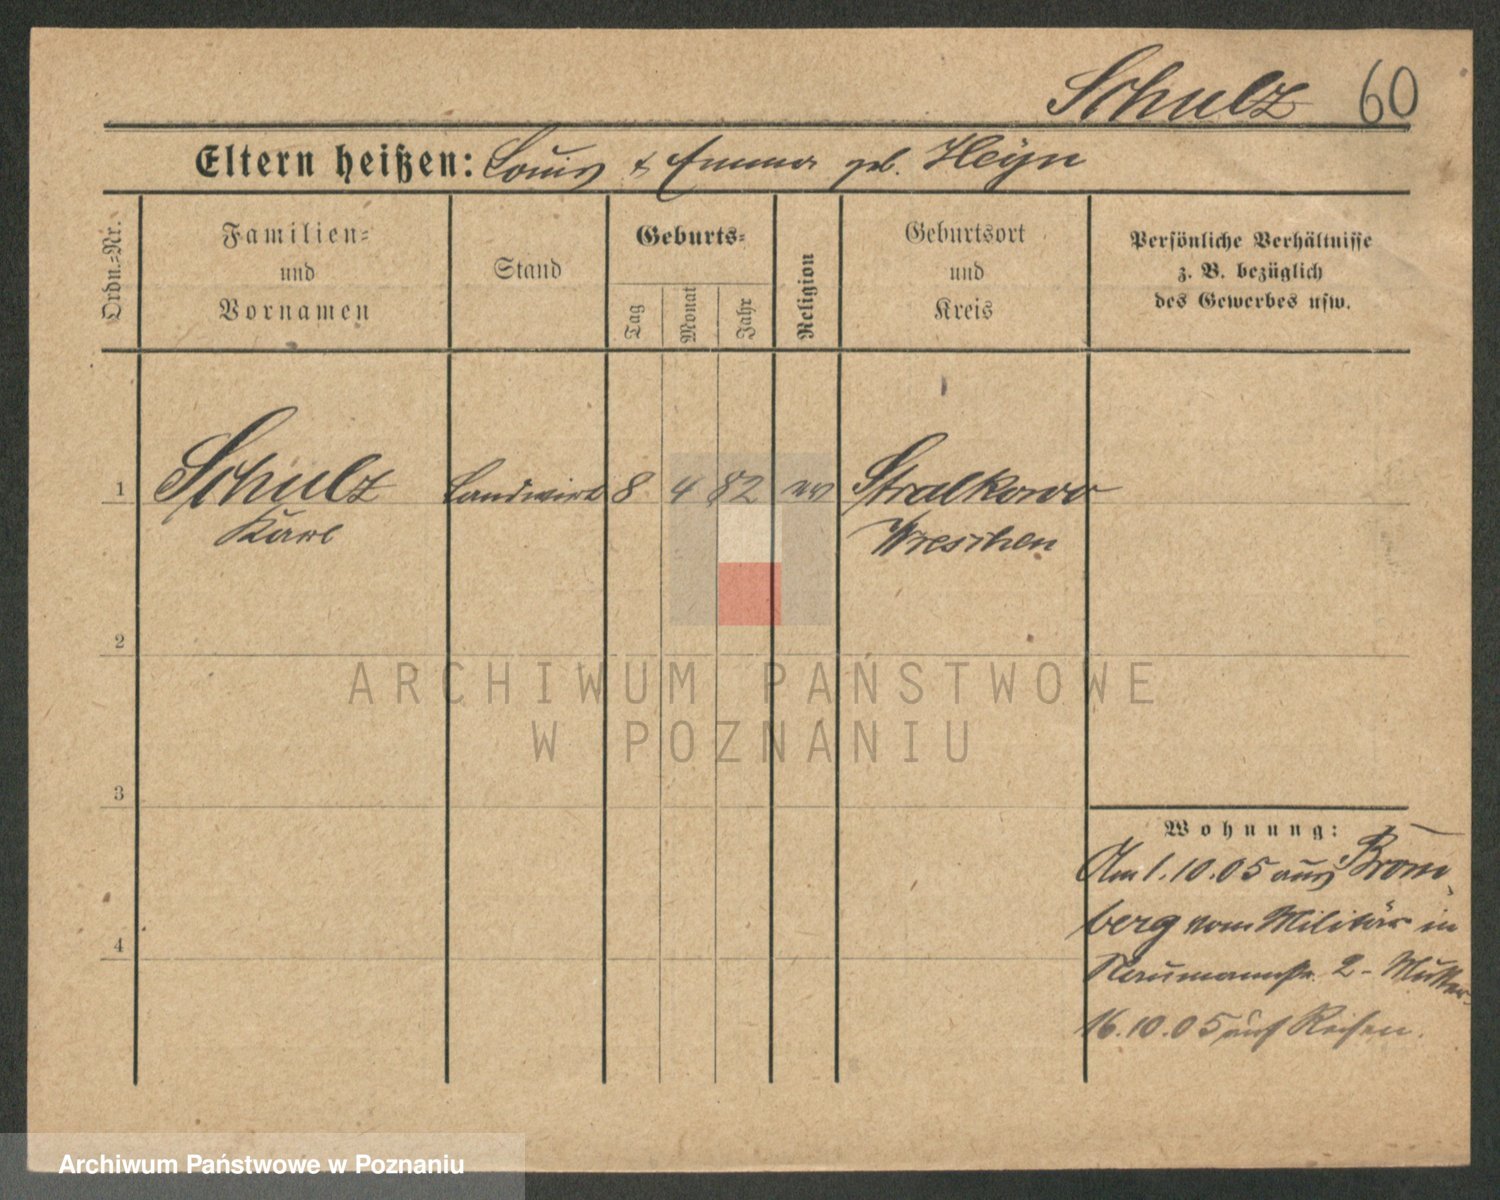 Schulz 60
Eltern heißen: Louis & Emma geb. Heyn
Ordn.-Nr.
Familien-
und
Vornamen
Stand
Geburts-
Tag
Monat
Jahr
Religion
Geburtsort
und
Kreis
Persönliche Verhältnisse
z. B. bezüglich
des Gewerbes usw.
1 Schulz Landwirt 8 4 82 ev Stralkowo
Karl Wreschen
2
ARCHIWUM PAŃSTWOWE
W POZNANIU
3
Wohnung:
Am 1.10.05 aus Brom-
berg vom Militär in
Naumannstr. 2 - Mutter
4
16.10.05 auf Reisen.
Archiwum Państwowe w Poznaniu